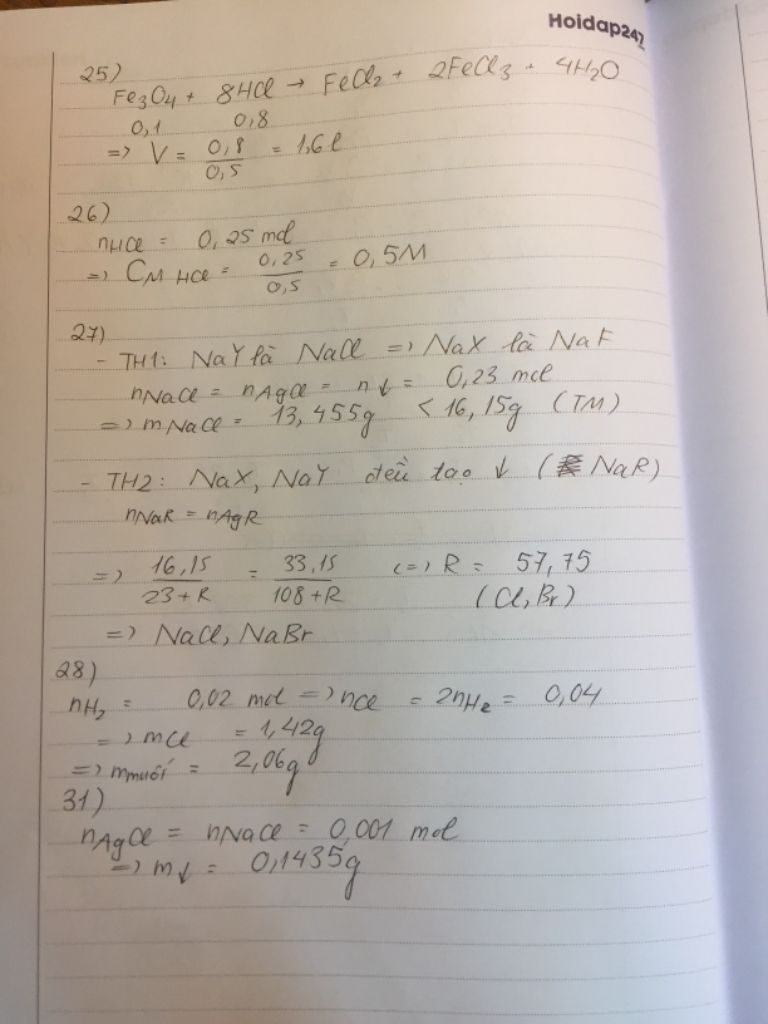 Hoidap247
25)
Fe3O4 + 8HCl → FeCl2 + 2FeCl3 + 4H2O
0,1 0,8
=> V = 0,8/0,5 = 1,6 l
26)
nHCl = 0,25 mol
=> CM HCl = 0,25/0,5 = 0,5M
27)
- TH1: NaY là NaCl => NaX là NaF
nNaCl = nAgCl = n↓ = 0,23 mol
=> mNaCl = 13,455g < 16,15g (TM)
- TH2: NaX, NaY đều tạo ↓ (NaR)
nNaR = nAgR
=> 16,15/23+R = 33,15/108+R <=> R = 57,75
(Cl, Br)
=> NaCl, NaBr
28)
nH2 = 0,02 mol => nCl = 2nH2 = 0,04
=> mCl = 1,42g
=> mmuối = 2,06g
31)
nAgCl = nNaCl = 0,001 mol
=> m↓ = 0,1435g